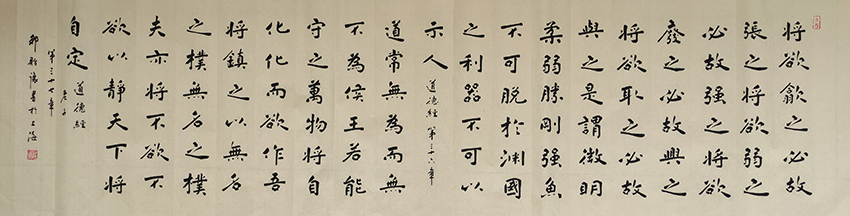 將欲歙之必故
張之將欲弱之
必故强之將欲
廢之必故興之
將欲取之必故
與之是謂微明
柔弱勝剛强魚
不可脫於淵國
之利器不可以
示人 道德經第三十六章
道常無為而無
不為侯王若能
守之萬物將自
化化而欲作吾
將鎮之以無名
之樸無名之樸
夫亦將不欲不
欲以靜天下將
自定 道德經
老子
第三十七章
書於上海